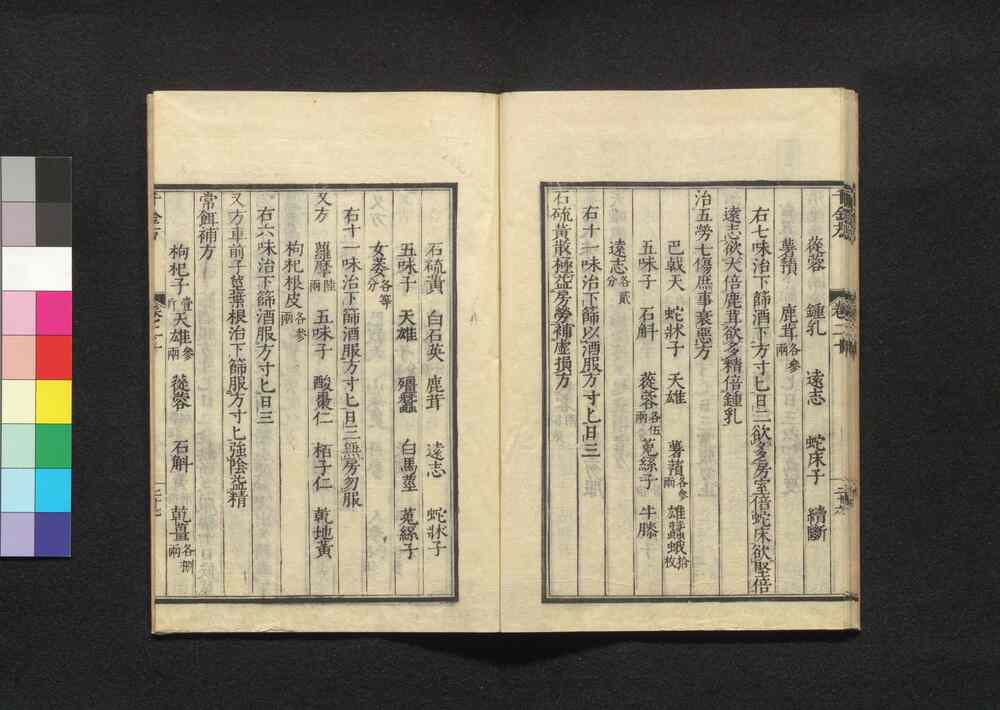 蓯蓉　鍾乳　遠志　蛇床子　續斷
薯蕷　鹿茸各參兩
右七味治下篩酒下方寸匕日二欲多房室倍蛇床欲堅倍
遠志欲大倍鹿茸欲多精倍鍾乳
治五勞七傷庶事衰惡方
巴戟天　蛇牀子　天雄　薯蕷各參兩　雄蠶蛾拾枚
五味子　石斛　蓯蓉各伍兩　菟絲子　牛膝
遠志各貳分
右十一味治下篩以酒服方寸匕日三
石硫黃散極益房勞補虛損方
石硫黃　白石英　鹿茸　遠志　蛇牀子
五味子　天雄　殭蠶　白馬莖　菟絲子
女萎各等分
右十一味治下篩酒服方寸匕日三無房勿服
又方　蘿摩陸兩　五味子　酸棗仁　柏子仁　乾地黃
枸杞根皮各參兩
右六味治下篩酒服方寸匕日三
又方車前子莖葉根治下篩服方寸匕強陰益精
常餌補方
枸杞子壹斤　天雄參兩　蓯蓉　石斛　乾薑各捌兩